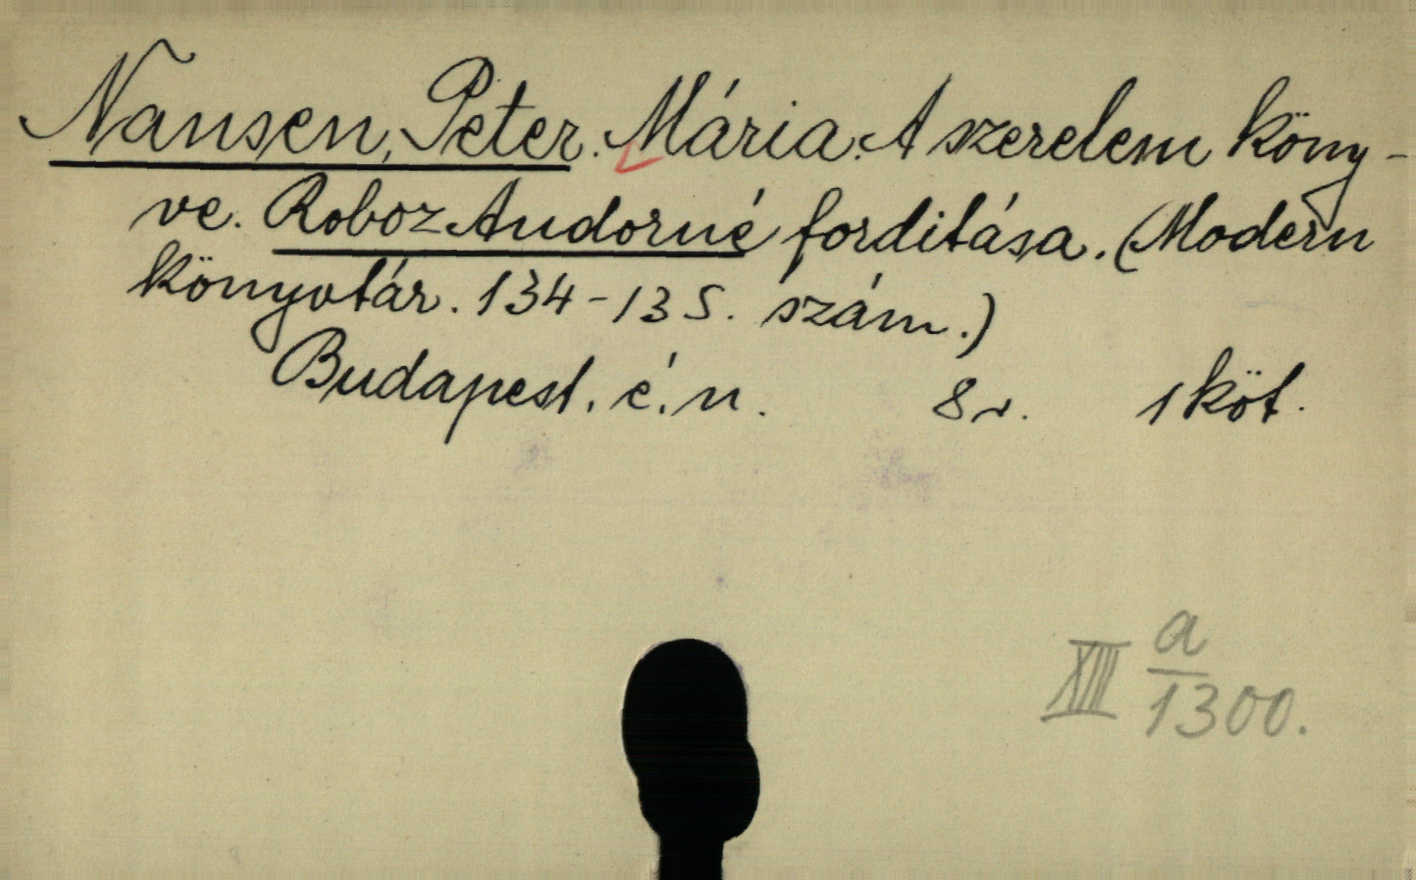 Nansen, Peter. Mária. A szerelem köny-
ve. Roboz Andorné forditása. (Modern
könyvtár. 134-135. szám.)
Budapest. é. n. 8r. 1 köt.
XIII a/1300.